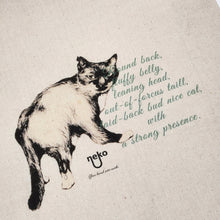 ound back,
uffy belly,
leaning head,
out-of-forcus taill,
aid-back bud nice cat,
with
a strong presence.
neko